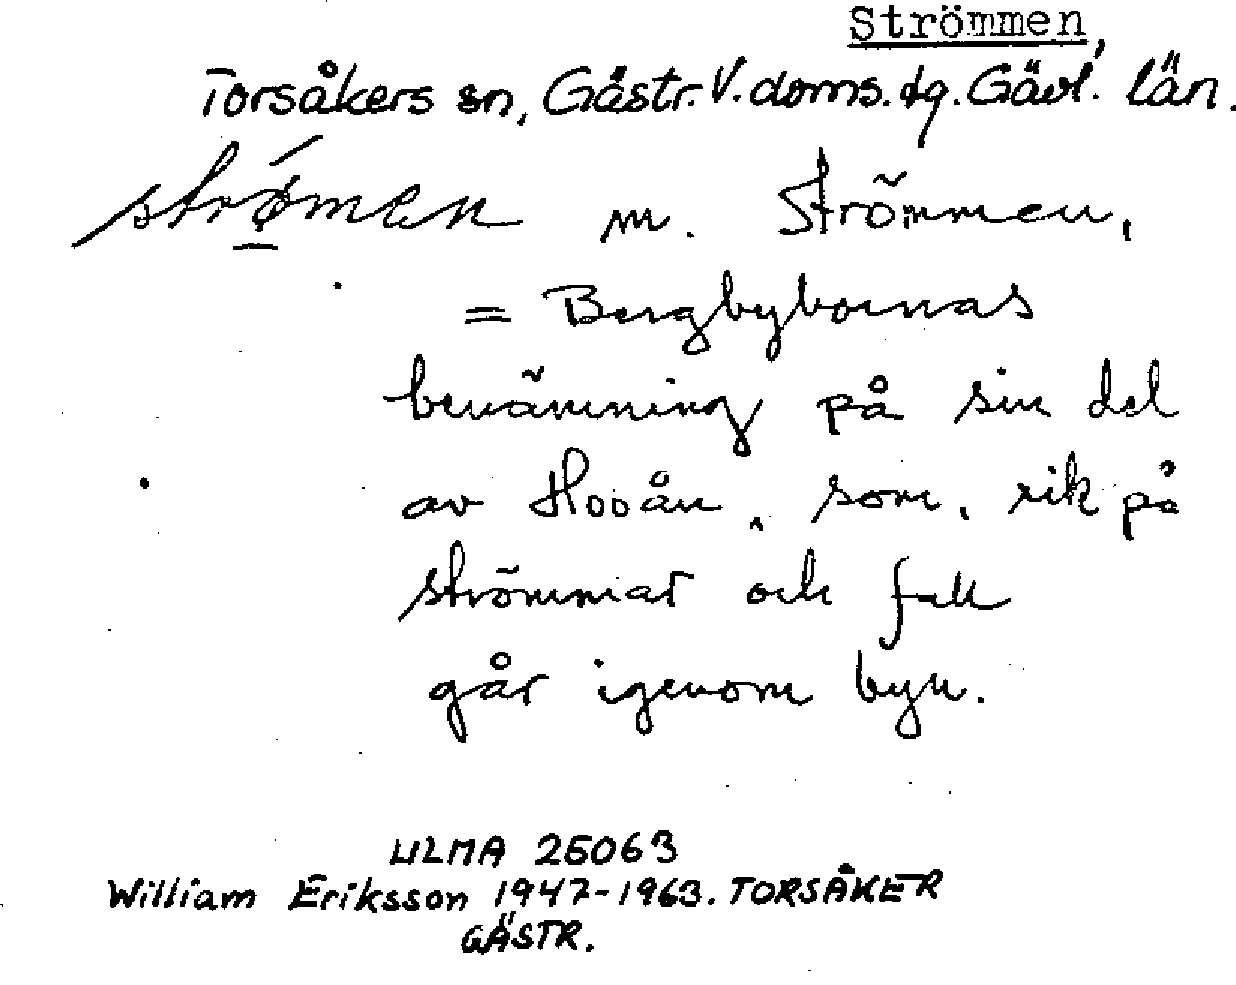 Strömmen,
Torsåkers sn, Gästr. V. doms. dg. Gävl. län.
strǿ̱men m. Strömmen,
= Bergbybornas
benämning på sin del
av Hooån, som, rik på
strömmar och fall
går igenom byn.
ULMA 25063
William Eriksson 1947-1963. TORSÅKER
GÄSTR.